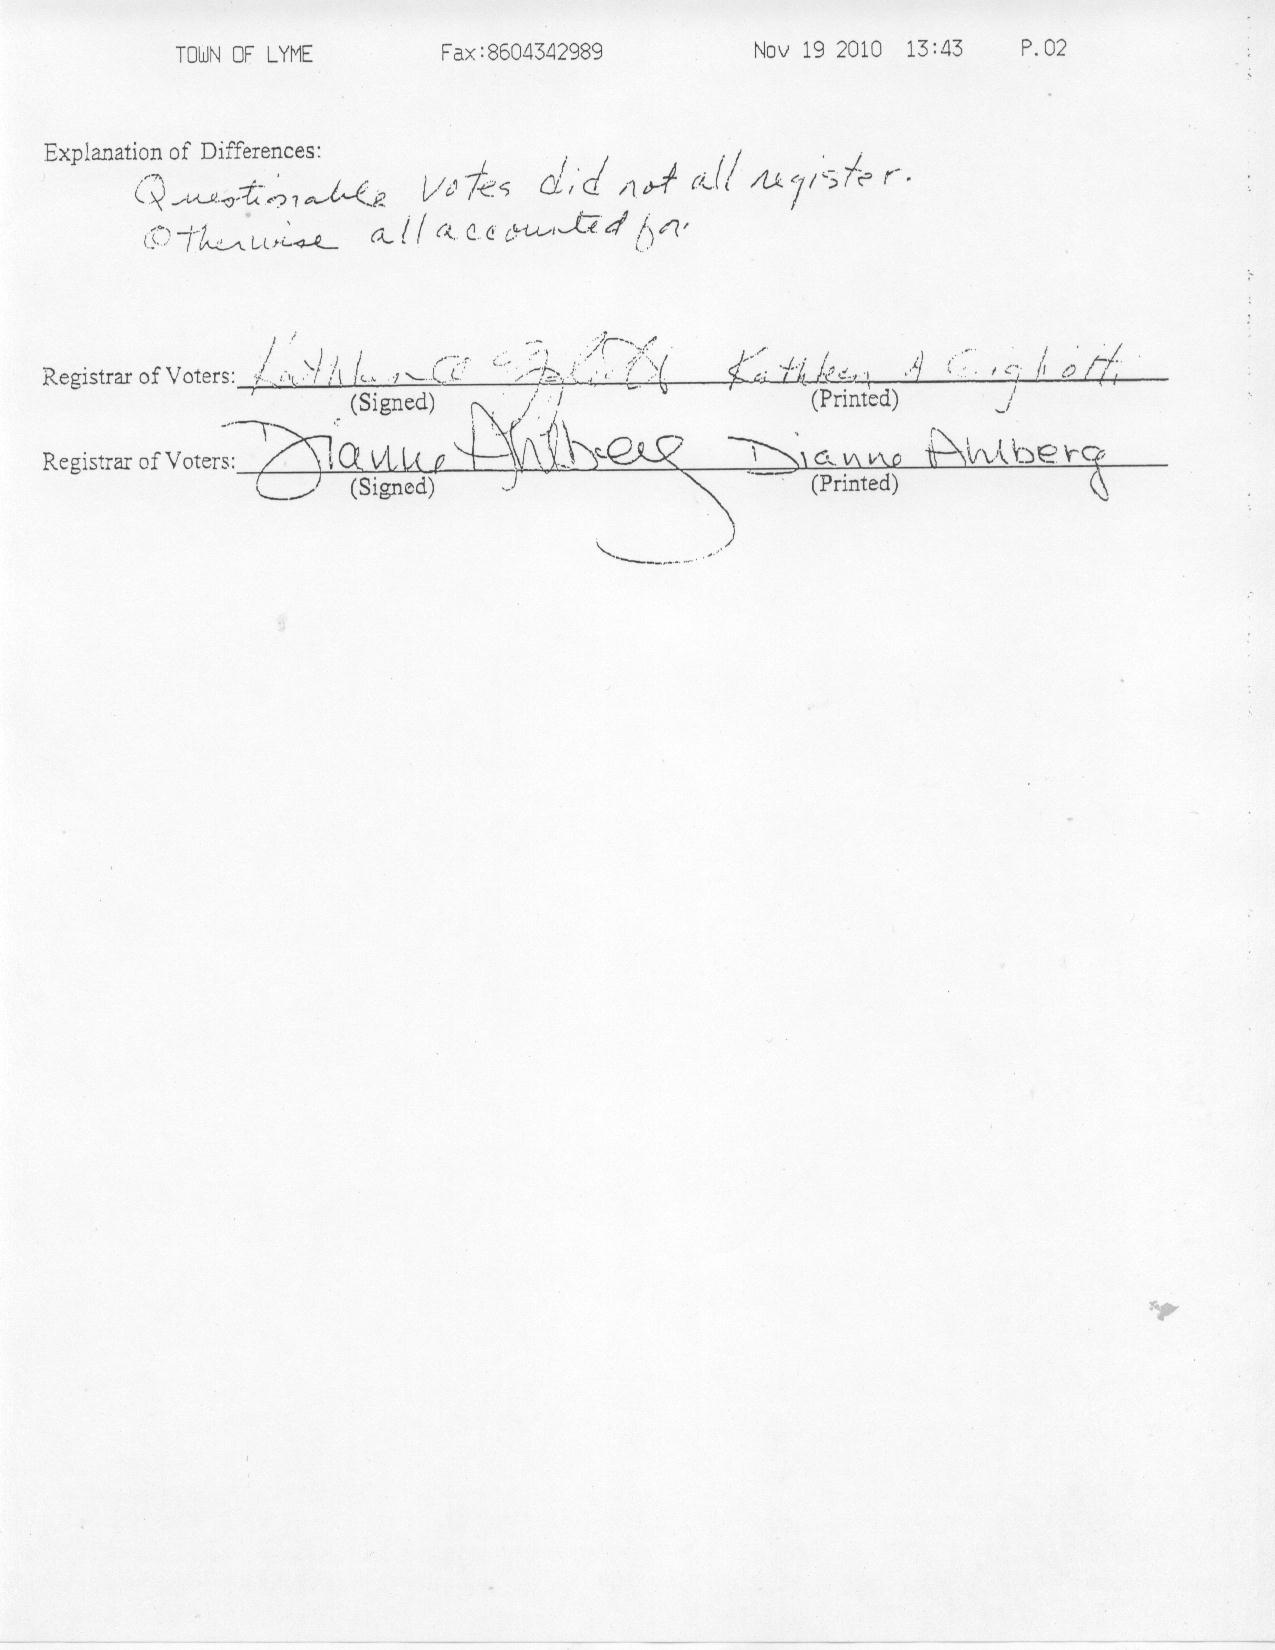 TOWN OF LYME Fax:8604342989 Nov 19 2010 13:43 P.02
Explanation of Differences:
Questionable votes did not all register.
Otherwise all accounted for.
Registrar of Voters: Kathleen A Kathleen A
(Signed) (Printed)
Registrar of Voters: Dianne Ahlberg Dianne Ahlberg
(Signed) (Printed)